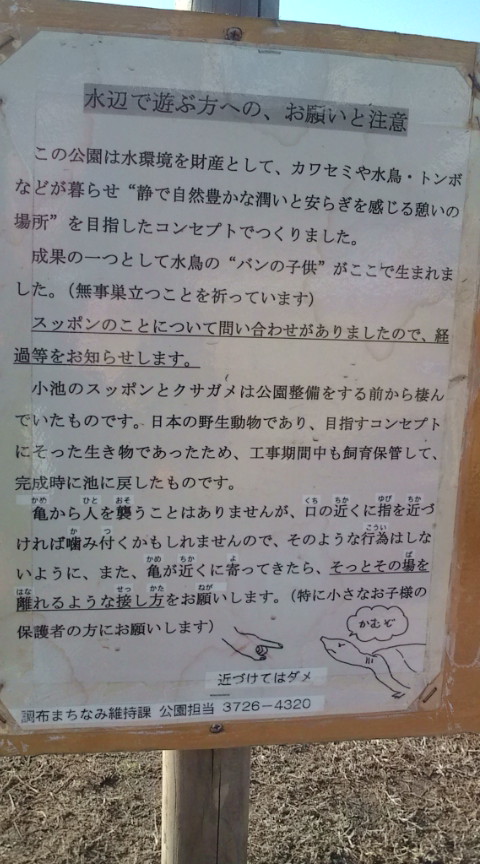 水辺で遊ぶ方への、お願いと注意
この公園は水環境を財産として、カワセミや水鳥・トンボ
などが暮らせ“静で自然豊かな潤いと安らぎを感じる憩いの
場所”を目指したコンセプトでつくりました。
成果の一つとして水鳥の“バンの子供”がここで生まれま
した。(無事巣立つことを祈っています)
スッポンのことについて問い合わせがありましたので、経
過等をお知らせします。
小池のスッポンとクサガメは公園整備をする前から棲ん
でいたものです。日本の野生動物であり、目指すコンセプト
にそった生き物であったため、工事期間中も飼育保管して、
完成時に池に戻したものです。
かめ ひと おそ くち ちか ゆび ちか
亀から人を襲うことはありませんが、口の近くに指を近づ
か つ こうい
ければ噛み付くかもしれませんので、そのような行為はしな
かめ ちか よ ば
いように、また、亀が近くに寄ってきたら、そっとその場を
はな せっ かた ねが
離れるような接し方をお願いします。(特に小さなお子様の
保護者の方にお願いします)
かむぞ
近づけてはダメ
調布まちなみ維持課 公園担当 3726-4320